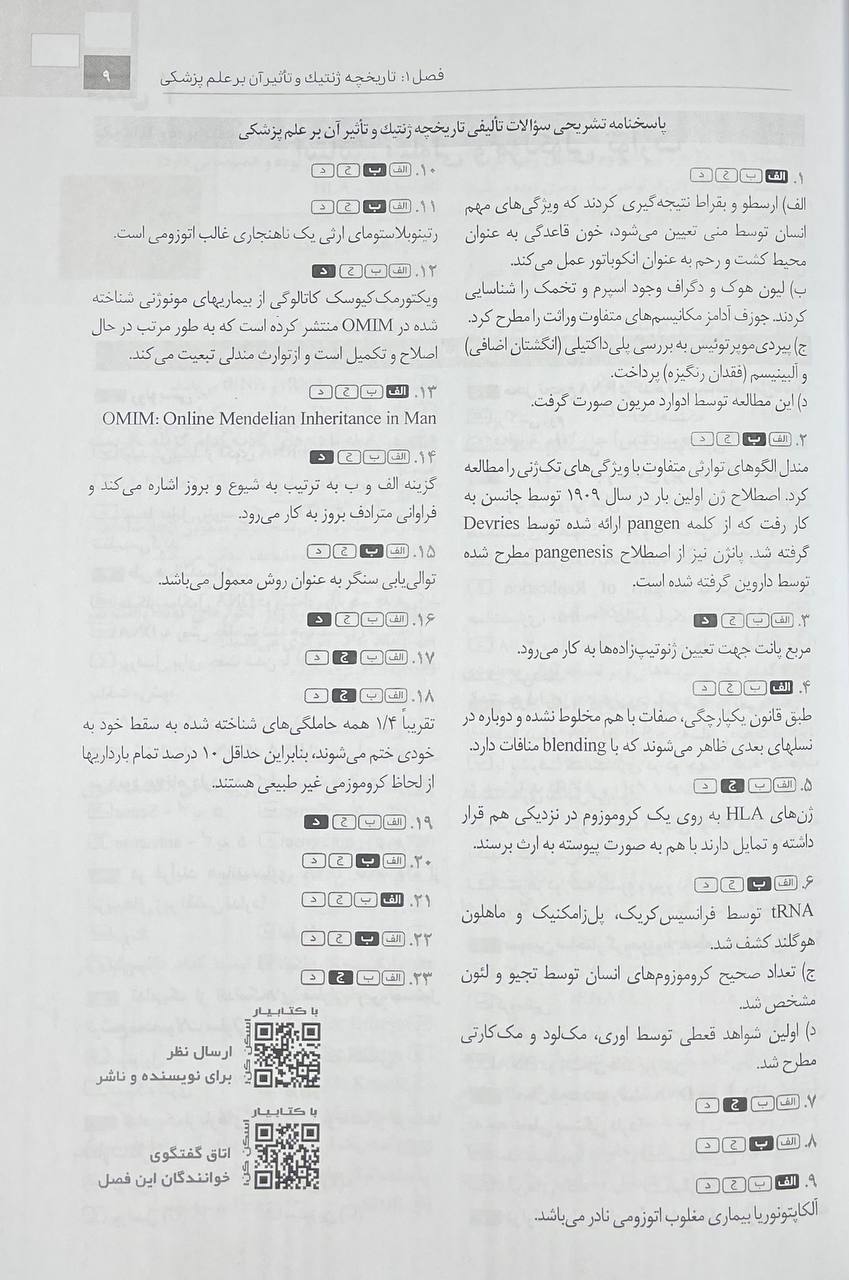 ۹
فصل ۱: تاریخچه ژنتیک و تأثیر آن بر علم پزشکی
پاسخنامه تشریحی سؤالات تألیفی تاریخچه ژنتیک و تأثیر آن بر علم پزشکی
۱. الف ب ج د
الف) ارسطو و بقراط نتیجه‌گیری کردند که ویژگی‌های مهم
انسان توسط منی تعیین می‌شود، خون قاعدگی به عنوان
محیط کشت و رحم به عنوان انکوباتور عمل می‌کند.
ب) لیون هوک و دگراف وجود اسپرم و تخمک را شناسایی
کردند. جوزف آدامز مکانیسم‌های متفاوت وراثت را مطرح کرد.
ج) پیر دی موپرتوئیس به بررسی پلی‌داکتیلی (انگشتان اضافی)
و آلبینیسم (فقدان رنگیزه) پرداخت.
د) این مطالعه توسط ادوارد مریون صورت گرفت.
۲. الف ب ج د
مندل الگوهای توارثی متفاوت با ویژگی‌های تک‌ژنی را مطالعه
کرد. اصطلاح ژن اولین بار در سال ۱۹۰۹ توسط جانسن به
کار رفت که از کلمه pangen ارائه شده توسط Devries
گرفته شد. پانژن نیز از اصطلاح pangenesis مطرح شده
توسط داروین گرفته شده است.
۳. الف ب ج د
مربع پانت جهت تعیین ژنوتیپ‌زاده‌ها به کار می‌رود.
۴. الف ب ج د
طبق قانون یکپارچگی، صفات با هم مخلوط نشده و دوباره در
نسلهای بعدی ظاهر می‌شوند که با blending منافات دارد.
۵. الف ب ج د
ژن‌های HLA به روی یک کروموزوم در نزدیکی هم قرار
داشته و تمایل دارند با هم به صورت پیوسته به ارث برسند.
۶. الف ب ج د
tRNA توسط فرانسیس کریک، پل‌زامکنیک و ماهلون
هوگلند کشف شد.
ج) تعداد صحیح کروموزوم‌های انسان توسط تجیو و لئون
مشخص شد.
د) اولین شواهد قعطی توسط اوری، مک‌لود و مک‌کارتی
مطرح شد.
۷. الف ب ج د
۸. الف ب ج د
۹. الف ب ج د
آلکاپتونوریا بیماری مغلوب اتوزومی نادر می‌باشد.
۱۰. الف ب ج د
۱۱. الف ب ج د
رتینوبلاستومای ارثی یک ناهنجاری غالب اتوزومی است.
۱۲. الف ب ج د
ویکتورمک‌کیوسک کاتالوگی از بیماریهای مونوژنی شناخته
شده در OMIM منتشر کرده است که به طور مرتب در حال
اصلاح و تکمیل است و از توارث مندلی تبعیت می‌کند.
۱۳. الف ب ج د
OMIM: Online Mendelian Inheritance in Man
۱۴. الف ب ج د
گزینه الف و ب به ترتیب به شیوع و بروز اشاره می‌کند و
فراوانی مترادف بروز به کار می‌رود.
۱۵. الف ب ج د
توالی‌یابی سنگر به عنوان روش معمول می‌باشد.
۱۶. الف ب ج د
۱۷. الف ب ج د
۱۸. الف ب ج د
تقریباً ۱/۴ همه حاملگی‌های شناخته شده به سقط خود به
خودی ختم می‌شوند، بنابراین حداقل ۱۰ درصد تمام بارداریها
از لحاظ کروموزمی غیر طبیعی هستند.
۱۹. الف ب ج د
۲۰. الف ب ج د
۲۱. الف ب ج د
۲۲. الف ب ج د
۲۳. الف ب ج د
با کتابیار
اسکن کن:
ارسال نظر
برای نویسنده و ناشر
با کتابیار
اسکن کن:
اتاق گفتگوی
خوانندگان این فصل